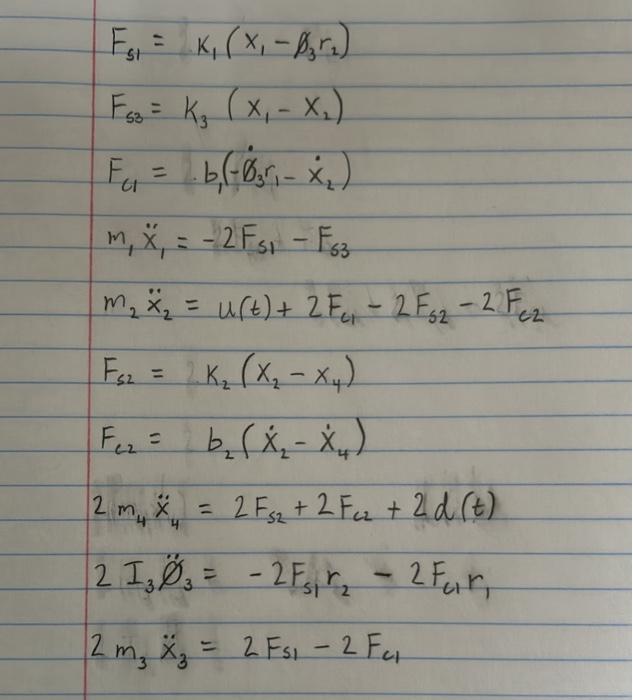 F_{s1} = K_1 (x_1 - ϕ_3 r_2)
F_{s3} = K_3 (x_1 - x_2)
F_{c1} = b_1(-ϕ̇_3 r_1 - ẋ_2)
m_1 ẍ_1 = -2F_{s1} - F_{s3}
m_2 ẍ_2 = u(t) + 2F_{c1} - 2F_{s2} - 2F_{c2}
F_{s2} = K_2 (x_2 - x_4)
F_{c2} = b_2 (ẋ_2 - ẋ_4)
2 m_4 ẍ_4 = 2F_{s2} + 2F_{c2} + 2d(t)
2 I_3 ϕ̈_3 = -2F_{s1} r_2 - 2F_{c1} r_1
2 m_3 ẍ_3 = 2F_{s1} - 2F_{c1}